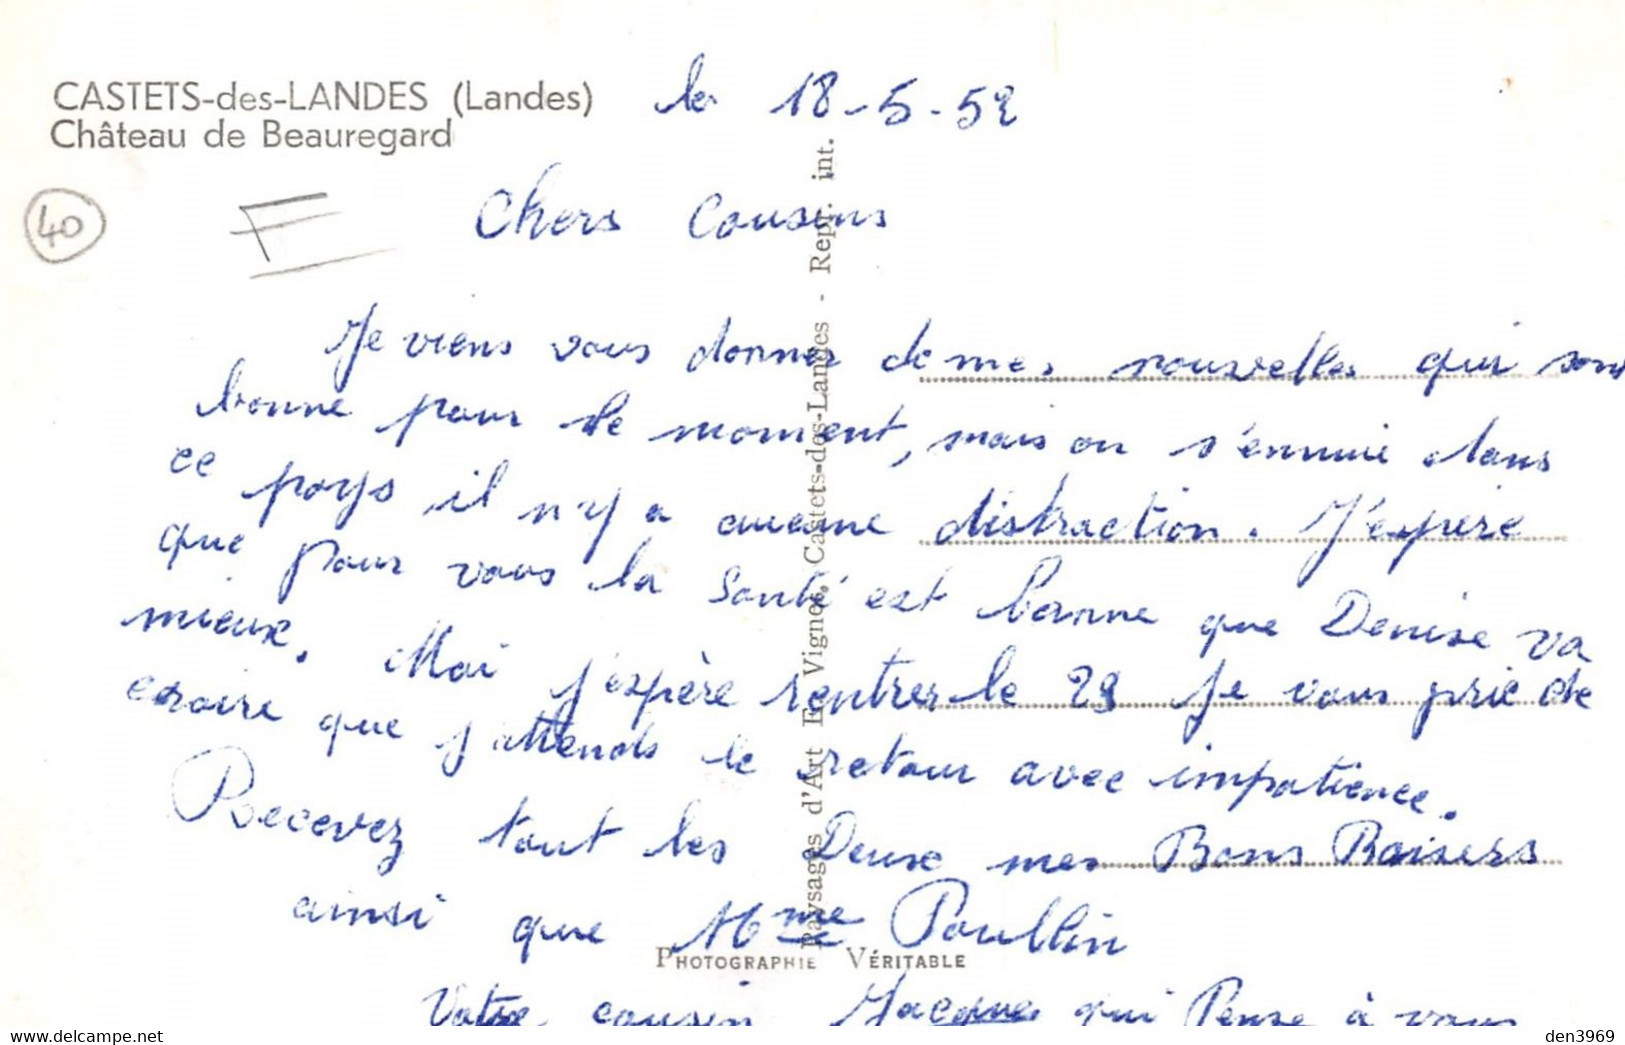 CASTETS-des-LANDES (Landes)
Château de Beauregard
le 18-5-52
40
F
Chers Cousins
Je viens vous donner de mes nouvelles qui sont
bonne pour le moment, mais on s'ennuie dans
ce pays il n'y a aucune distraction. J'espère
que pour vous la Santé est bonne que Denise va
mieux. Moi j'espère rentrer le 29 Je vous prie de
croire que j'attends le retour avec impatience.
Recevez tout les Deux mes Bons Baisers
ainsi que Mme Poullin
Votre cousin Jacques qui Pense à vous
Paysages d'Art E. Vignes, Castets-des-Landes - Repr. int.
PHOTOGRAPHIE VÉRITABLE
www.delcampe.net
den3969